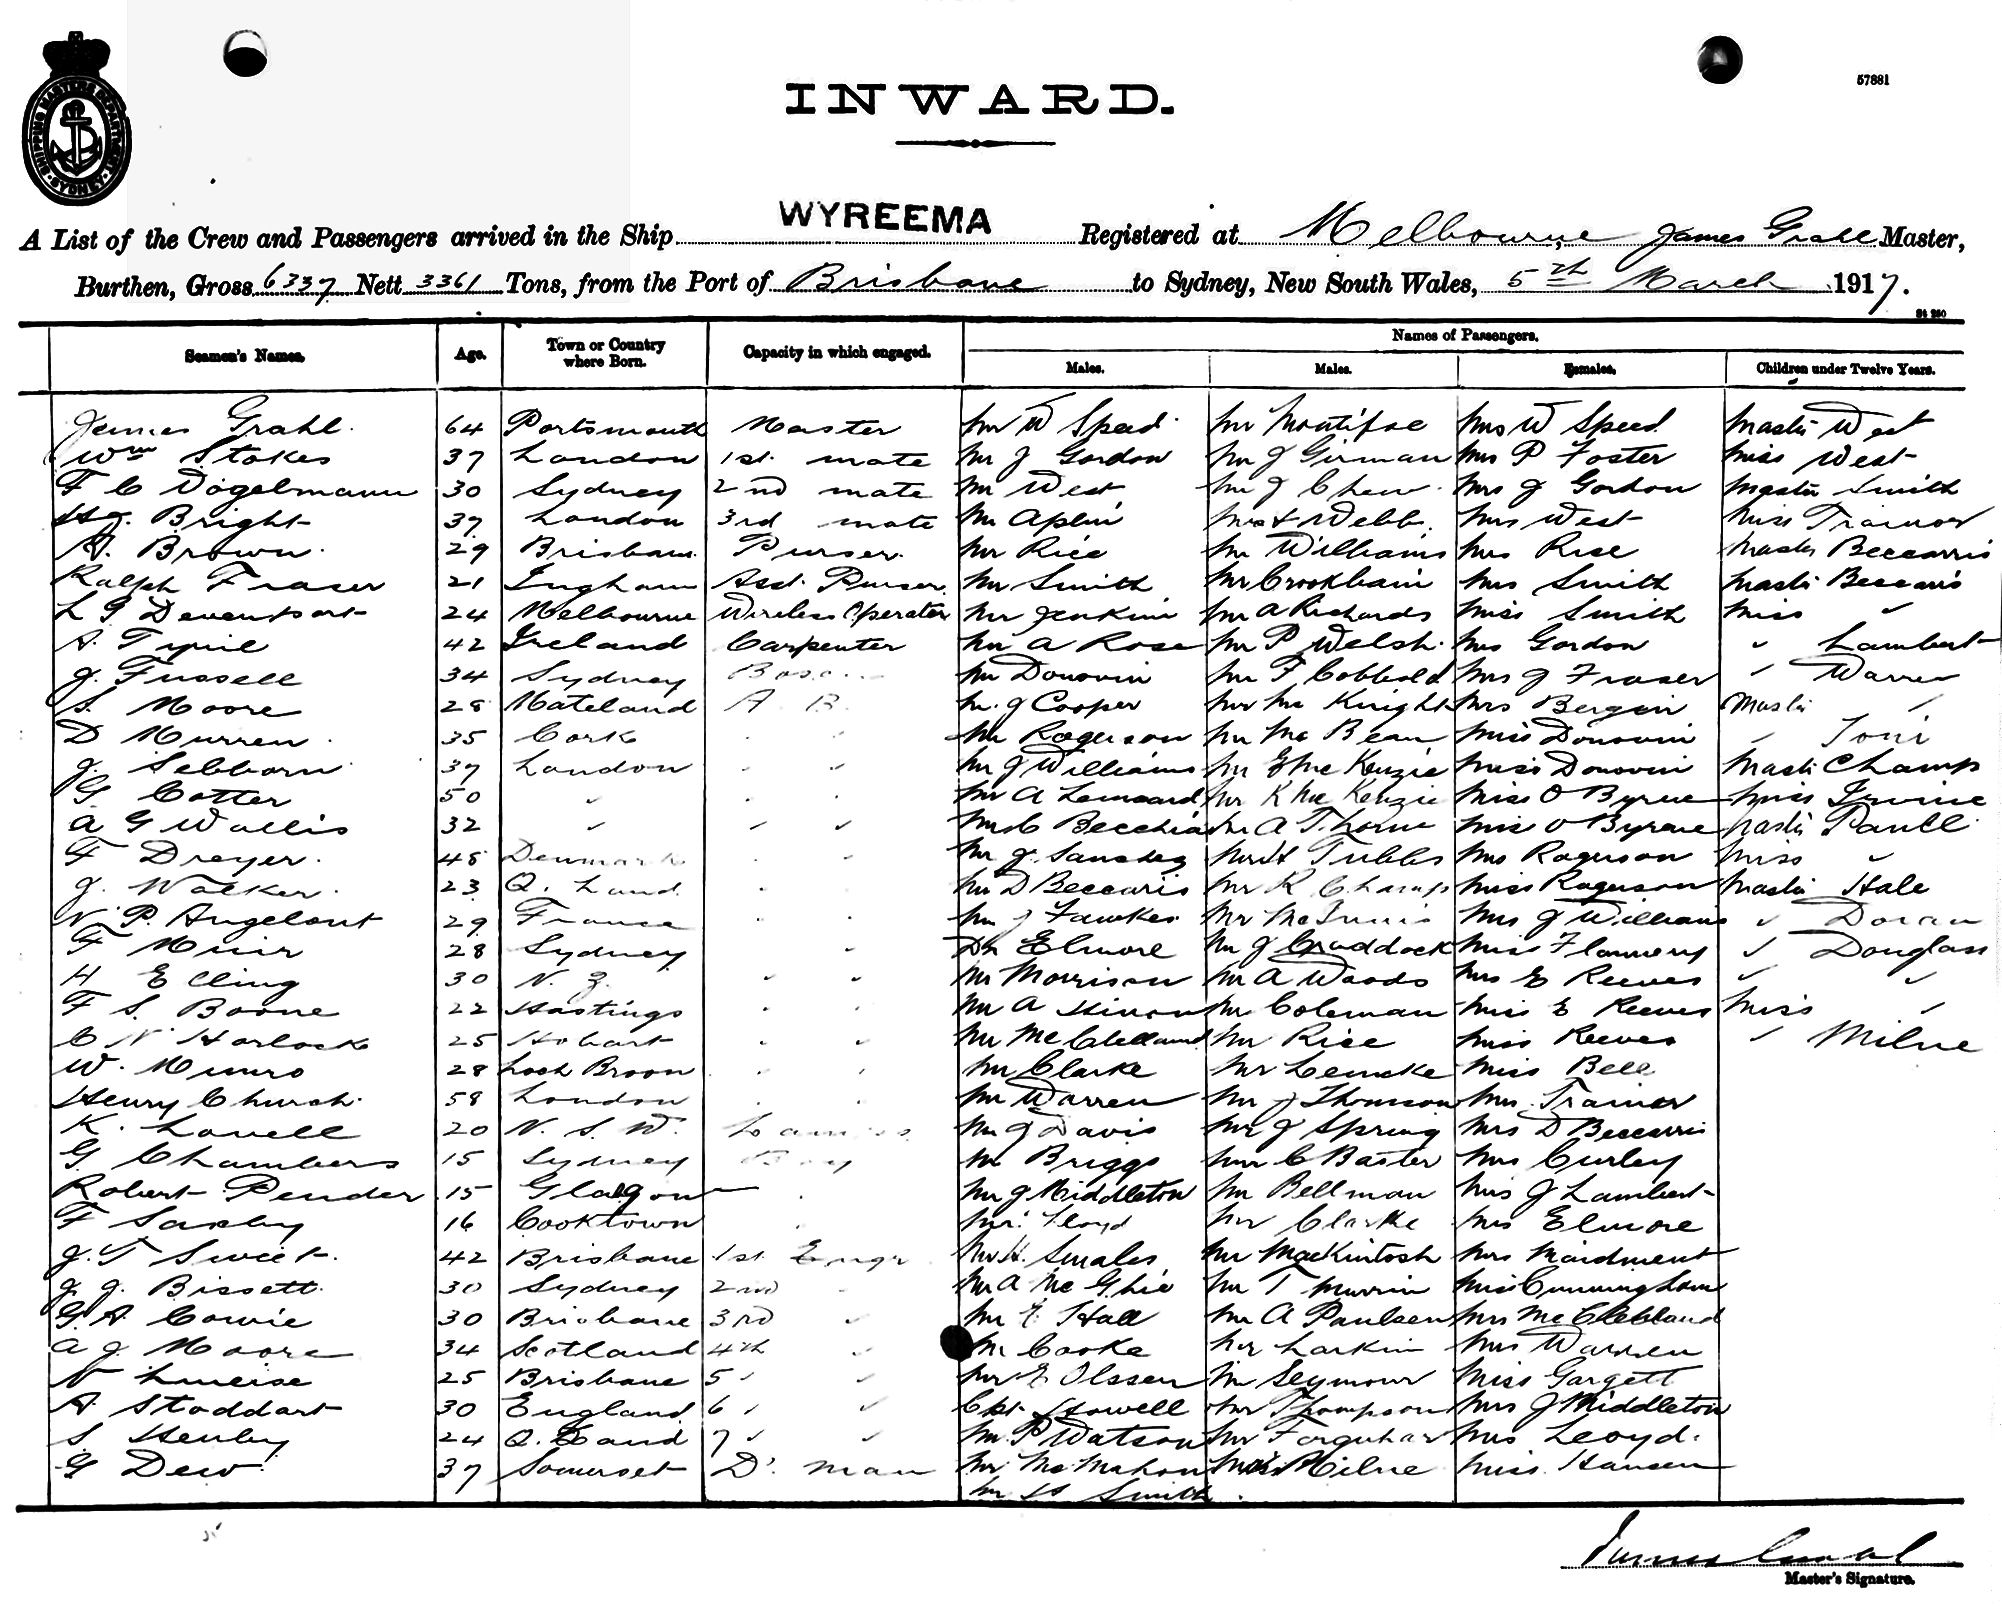 SHIPPING MASTERS DEPARTMENT SYDNEY
57881
INWARD.
A List of the Crew and Passengers arrived in the Ship WYREEMA Registered at Melbourne, James Grahl Master,
Burthen, Gross 6337 Nett 3361 Tons, from the Port of Brisbane to Sydney, New South Wales, 5th March 1917.
St 250
Seamen's Names. Age. Town or Country where Born. Capacity in which engaged. Names of Passengers.
Males. Males. Females. Children under Twelve Years.
James Grahl. 64 Portsmouth Master Mr W Speed Mr Montifoe Mrs W Speed Master West
Wm Stokes 37 London 1st mate Mr J Gordon Mr J Girman Mrs P Foster Miss West
F C Vogelmann 30 Sydney 2nd mate Mr West Mr J Chew Mrs J Gordon Master Smith
Hy. Bright 37 London 3rd mate Mr Aplin Mr H Webb. Mrs West Miss Trainor
A. Brown. 29 Brisbane Purser. Mr Rice Mr Williams Mrs Rice Master Beccarris
Ralph Fraser 21 Ingham Asst. Purser Mr Smith Mr Crookbain Mrs Smith Master Beccaris
L G Devenport 24 Melbourne Wireless Operator Mr Jenkins Mr A Richards Miss Smith Miss "
A. Tyrie 42 Ireland Carpenter Mr A Rose Mr P Welsh. Mrs Gordon " Lambert
J. Fussell 34 Sydney Mr Donovin Mr F Cobbold Mrs J Fraser " Warren
S. Moore 28 Mateland A. B. Mr J Cooper Mr McKnight Mrs Bergin Master "
D Murren 35 Cork " " Mr Rogerson Mr McBean Miss Donovin " Toni
J. Sebborn 37 London " " Mr J Williams Mr E McKenzie Miss Donovin Master Champ
G Cotter 50 " " " Mr A Lennard Mr K McKenzie Miss O Byrne Miss Irvine
A G Wallis 32 " " " Mr C Becchia Mr A Thorne Miss O Byrne Master Paull
F Dreyer. 48 Denmark " " Mr J. Mr H Tubbs Mrs Rogerson Miss "
J. Walker. 23 Q. Land. " " Mr D Beccaris Mr R Champ Miss Rogerson Master Hale
N. P. Angelout 29 France " " Mr J Fawkes Mr McInnis Mrs J Williams " Doran
F Muir 28 Sydney " " Dr Elmore Mr J Craddock Miss Flannery " Douglass
H Elling 30 N. Z. " " Mr Morrison Mr A Woods Mrs E Reeves " "
F S. Boone 22 Hastings " " Mr A Hinon Mr Coleman Miss E Reeves Miss "
C N Horlock 25 Hobart " " Mr McClelland Mr Rice Miss Reeves " Milne
W. Munro 28 Loch Broon " " Mr Clarke Mr Lemcke Miss Bell
Henry Church. 58 London " " Mr Warren Mr J Thomson Mrs Trainor
K. Lovell 20 N. S. W. Mr J Davis Mr J Spring Mrs D Beccarris
G Chambers 15 Sydney Boy Mr Briggs Mr C Baster Mrs Curley
Robert Pender 15 Glasgow " Mr J Middleton Mr Bellman Mrs J Lambert
F Saxby 16 Cooktown " Mr. Lloyd Mr Clarke Mrs Elmore
J. T Sweet. 42 Brisbane 1st Engr Mr H. Smales Mr Mackintosh Mrs Maidment
J. J. Bissett. 30 Sydney 2nd " Mr A McGhie Mr T Murrin Miss Cunningham
G. A. Cowie 30 Brisbane 3rd " Mr E Hall Mr A Paulsen Mrs McClelland
A J. Moore 34 Scotland 4th " Mr Cooke Mr Larkin Mrs Warren
N 25 Brisbane 5 " " Mr E Olssen Mr Seymour Miss Gargett
A. Stoddart 30 England 6 " " Cpt Howell Mr Thompson Mrs J Middleton
S. Henley 24 Q. Land 7 " " Mr P Watson Mr Farquhar Mrs Lloyd.
G Dew. 37 Somerset D. man Mr McMahon Miss Milne Miss Hansen
Mr H Smith
James Grahl
Master's Signature.